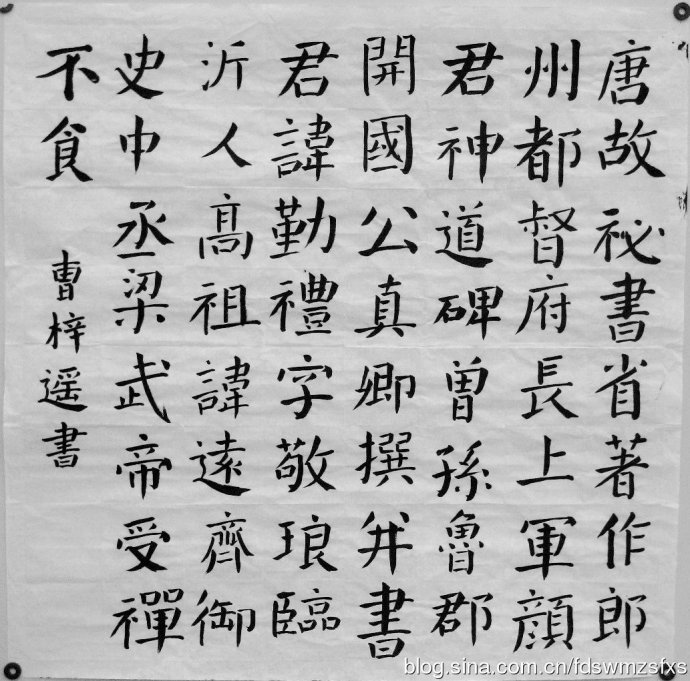 唐故祕書省著作郎
州都督府長上軍顏
君神道碑曽孫魯郡
開國公真卿撰并書
君諱勤禮字敬琅臨
沂人高祖諱遠齊御
史中丞梁武帝受禪
不食
曹梓遥書
blog.sina.com.cn/fdswmzsfxs